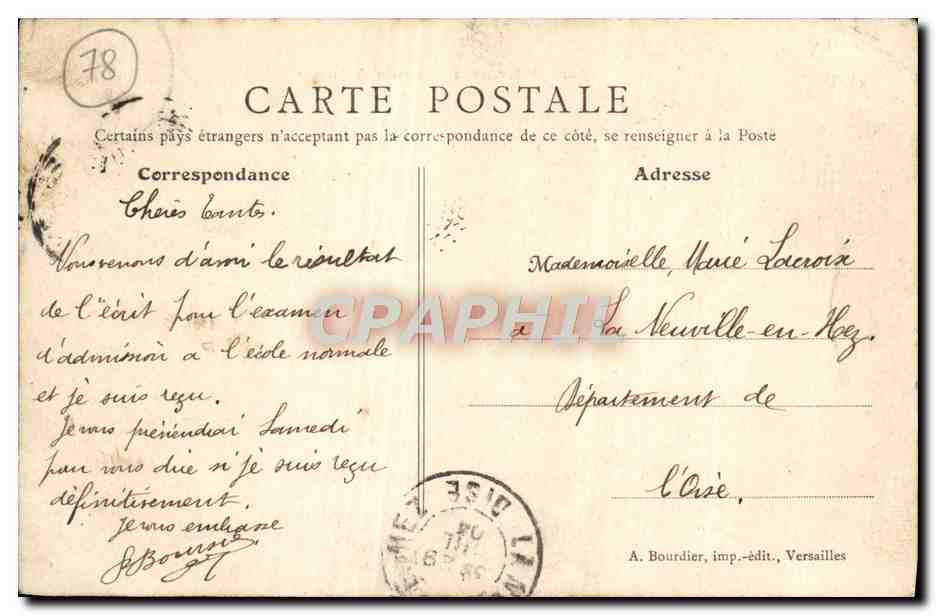 78
CARTE POSTALE
Certains pays étrangers n'acceptant pas la correspondance de ce côté, se renseigner à la Poste
Correspondance
Chères Tantes.
Nous venons d'avoir le résultat
de l'écrit pour l'examen
d'admission a l'école normale
et je suis reçu.
Je vous préviendrai Samedi
pour vous dire si je suis reçu
définitivement.
Je vous embrasse
Adresse
Mademoiselle Marie Lacroix
a La Neuville-en-Hez.
Département de
l'Oise.
CPAPHIL
HEZ OISE LA N
A. Bourdier, imp.-édit., Versailles